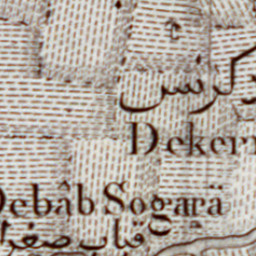 دكرنس
Dekern
Debâb Sogarä
قباب صغرا